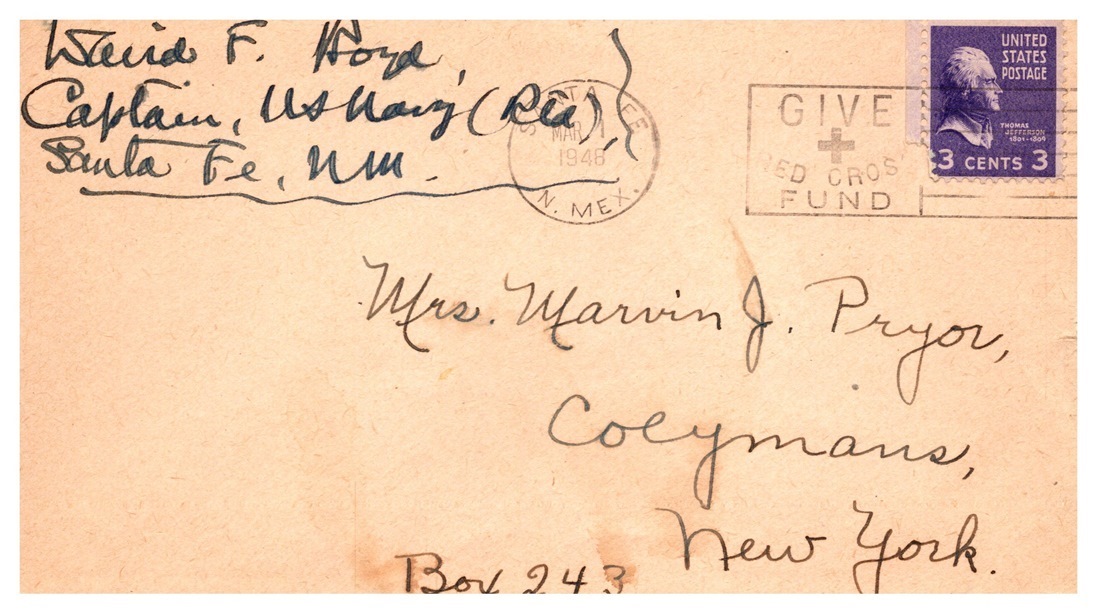 David F. Boyd,
Captain, US Navy (Ret),
Santa Fe, NM.
SANTA FE
MAR 1
1948
N. MEX.
GIVE
RED CROSS
FUND
UNITED
STATES
POSTAGE
THOMAS
JEFFERSON
1801-1809
3 CENTS 3
Mrs. Marvin J. Pryor,
Coeymans,
New York.
Box 243